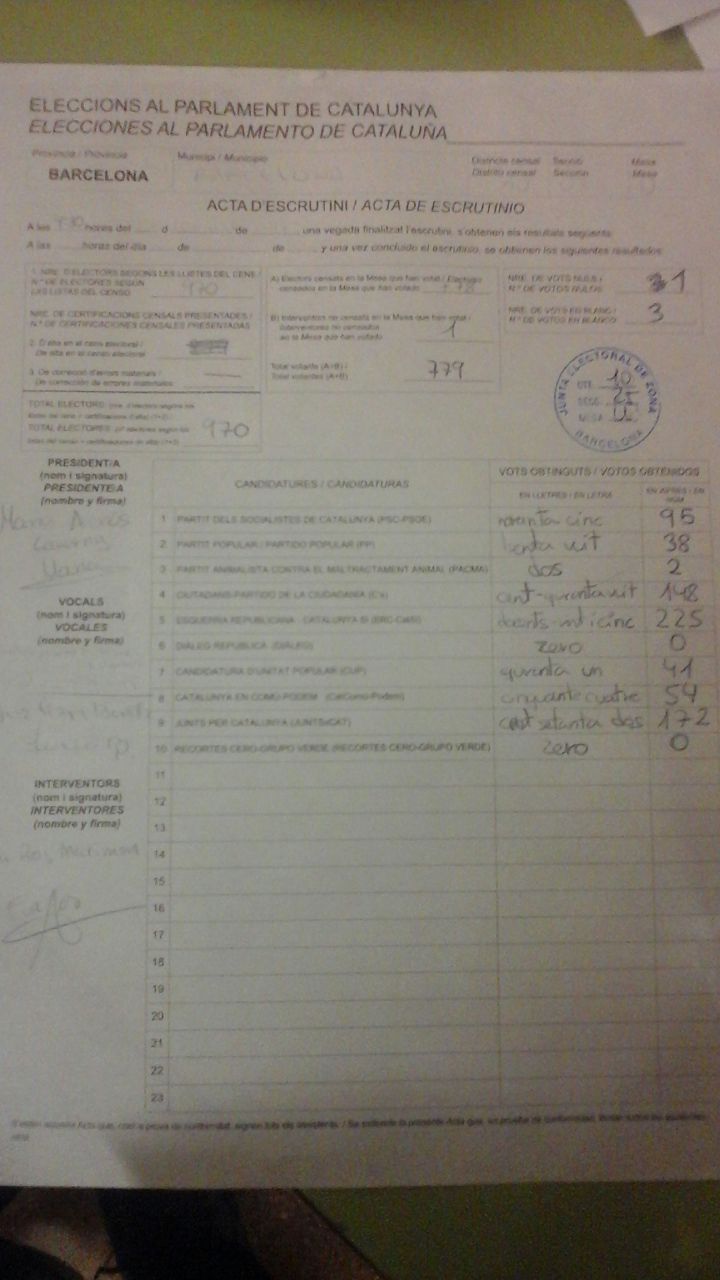 ELECCIONS AL PARLAMENT DE CATALUNYA
ELECCIONES AL PARLAMENTO DE CATALUÑA
Província / Provincia
Municipi / Municipio
Districte censal Secció Mesa
Distrito censal Sección Mesa
BARCELONA
ACTA D'ESCRUTINI / ACTA DE ESCRUTINIO
A les hores del d de una vegada finalitzat l'escrutini, s'obtenen els resultats següents:
A las horas del día de de y una vez concluido el escrutinio, se obtienen los siguientes resultados:
1. NRE. D'ELECTORS SEGONS LES LLISTES DEL CENS /
Nº DE ELECTORES SEGÚN
LAS LISTAS DEL CENSO 970
NRE. DE CERTIFICACIONS CENSALS PRESENTADES /
Nº DE CERTIFICACIONES CENSALES PRESENTADAS
2. D'alta en el cens electoral /
De alta en el censo electoral
3. De correcció d'errors materials /
De corrección de errores materiales
TOTAL ELECTORS
TOTAL ELECTORES 970
A) Electors censats en la Mesa que han votat / Electores
censados en la Mesa que han votado 778
B) Interventors no censats en la Mesa que han votat /
Interventores no censados
en la Mesa que han votado 1
Total votants (A+B) /
Total votantes (A+B) 779
NRE. DE VOTS NULS /
Nº DE VOTOS NULOS 1
NRE. DE VOTS EN BLANC /
Nº DE VOTOS EN BLANCO 3
JUNTA ELECTORAL DE ZONA
DTE. 10
SECC.
MESA
BARCELONA
PRESIDENT/A
(nom i signatura)
PRESIDENTE/A
(nombre y firma)
VOCALS
(nom i signatura)
VOCALES
(nombre y firma)
INTERVENTORS
(nom i signatura)
INTERVENTORES
(nombre y firma)
CANDIDATURES / CANDIDATURAS
VOTS OBTINGUTS / VOTOS OBTENIDOS
EN LLETRES / EN LETRA
EN XIFRES / EN NÚM
1 PARTIT DELS SOCIALISTES DE CATALUNYA (PSC-PSOE) noranta cinc 95
2 PARTIT POPULAR / PARTIDO POPULAR (PP) trenta vuit 38
3 PARTIT ANIMALISTA CONTRA EL MALTRACTAMENT ANIMAL (PACMA) dos 2
4 CIUTADANS-PARTIDO DE LA CIUDADANÍA (C's) cent-quranta vuit 148
5 ESQUERRA REPUBLICANA - CATALUNYA SÍ (ERC-CatSí) doscents-vint i cinc 225
6 DIÀLEG REPUBLICÀ (DIÀLEG) zero 0
7 CANDIDATURA D'UNITAT POPULAR (CUP) quranta un 41
8 CATALUNYA EN COMÚ PODEM (CatComú-Podem) cinquanta cuatre 54
9 JUNTS PER CATALUNYA (JUNTSxCAT) cent setanta dos 172
10 RECORTES CERO-GRUPO VERDE (RECORTES CERO-GRUPO VERDE) zero 0
11
12
13
14
15
16
17
18
19
20
21
22
23